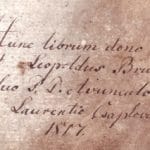 Hunc librum dono
Leopoldus Bru
suo P. D.
Laurentio Csaplov
1877.